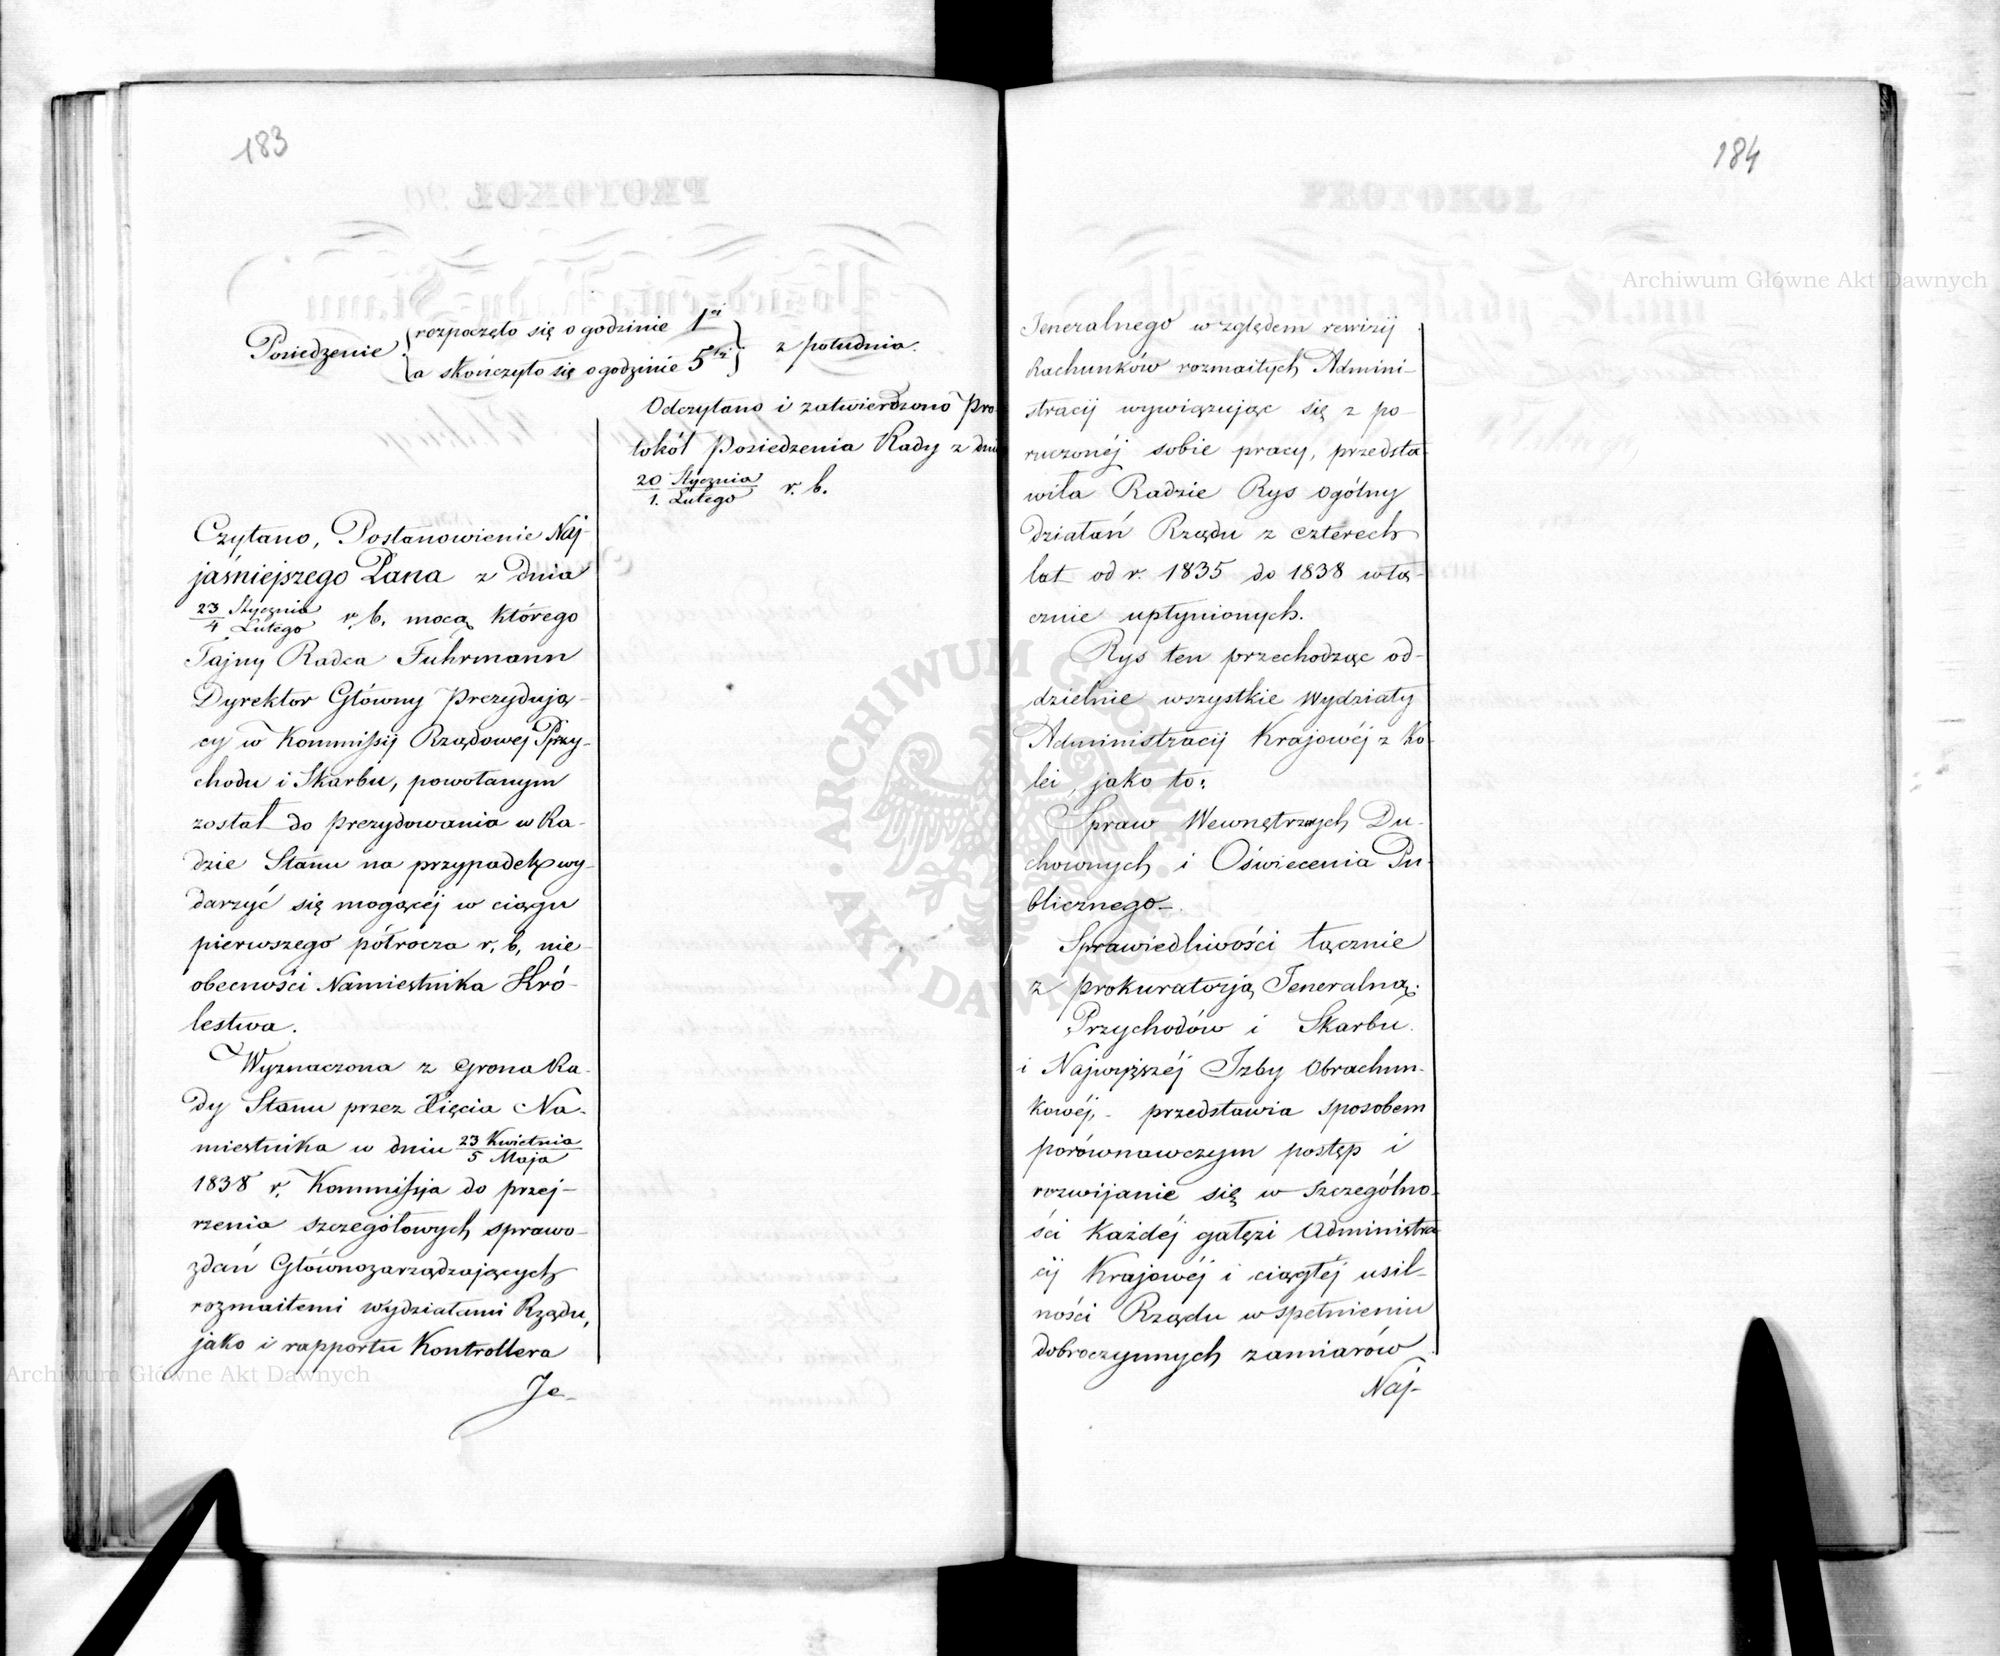 183
Posiedzenie rozpoczęło się o godzinie 1ej
a skończyło się o godzinie 5tej z południa.
Odczytano i zatwierdzono Pro-
tokół Posiedzenia Rady z dnia
20 Stycznia
1. Lutego r. b.
Czytano, Postanowienie Naj-
jaśniejszego Pana z dnia
23 Stycznia
4 Lutego r. b. mocą którego
Tajny Radca Fuhrmann
Dyrektor Główny Prezydują-
cy w Kommissyi Rządowej Przy-
chodu i Skarbu, powołanym
został do prezydowania w Ra-
dzie Stanu na przypadek wy-
darzyć się mogącéj w ciągu
pierwszego półrocza r. b. nie-
obecności Namiestnika Kró-
lestwa.
Wyznaczona z grona Ra-
dy Stanu przez Xięcia Na-
miestnika w dniu 23 Kwietnia
5 Maja
1838 r. Kommissja do przej-
rzenia szczegółowych sprawo-
zdań Głównozarządzających
rozmaitemi wydziałami Rządu,
jako i rapportu Kontrollera
Je-
184
Jeneralnego względem rewizij
Rachunków rozmaitych Admini-
stracij wywiązując się z po-
ruczonéj sobie pracy, przedsta-
wiła Radzie Rys ogólny
działań Rządu z czterech
lat od r. 1835 do 1838 włą-
cznie upłynionych.
Rys ten przechodząc od-
dzielnie wszystkie wydziały
Administracij Krajowéj z ko-
lei, jako to:
Spraw Wewnętrznych Du-
chownych i Oświecenia Pu-
blicznego.
Sprawiedliwości łącznie
z prokuratorją Jeneralną.
Przychodów i Skarbu.
i Najwyższéj Izby Obrachun-
kowéj, - przedstawia sposobem
porównawczym postęp i
rozwijanie się w szczególno-
ści każdéj gałęzi Administra-
cij Krajowéj i ciągłéj usil-
ności Rządu w spełnieniu
dobroczynnych zamiarów
Naj-
Archiwum Główne Akt Dawnych
Archiwum Główne Akt Dawnych
ARCHIWUM GŁÓWNE AKT DAWNYCH